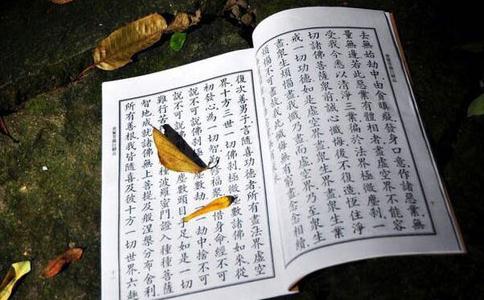 去無始劫中由貪瞋癡發身口意作諸惡業無
量無邊若此惡業有體相者盡虛空界不能容
受我今悉以清淨三業徧於法界極微塵剎一
切諸佛菩薩眾前誠心懺悔後不復造恆住淨
戒一切功德如是虛空界盡眾生界盡眾生業
盡眾生煩惱盡我懺乃盡而虛空界乃至眾生
煩惱不可盡故我此懺悔無有窮盡念念相續
復次善男子言隨喜功德者所有盡法界虛空
界十方三世一切佛剎極微塵數諸佛如來從
初發心為一切智修福聚不惜身命經不可
說不可說佛剎極塵數劫劫中捨不可
說不可說佛剎極微塵數頭目手足如是一切
難行苦種波羅蜜門證入種種菩薩
智地成就諸佛無上菩提及般涅槃分布舍利
所有善根我皆隨喜及彼十方一切世界六趣